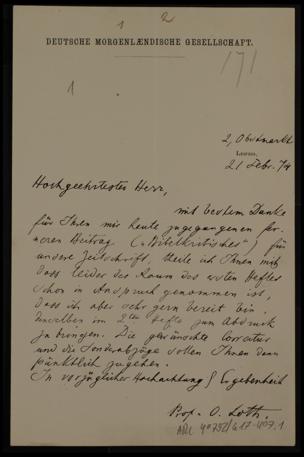 1 2
DEUTSCHE MORGENLÆNDISCHE GESELLSCHAFT.
171
1
2, Obstmarkt
LEIPZIG,
21 Febr. 79
Hochgeehrtester Herr,
mit bestem Danke
für Ihren mir heute zugegangenen fer-
neren Beitrag für
unsere Zeitschrift, theile ich Ihnen mit,
dass leider der Raum des ersten Heftes
schon in Anspruch genommen ist,
dass ich aber sehr gern bereit bin,
denselben im 2ten Hefte zum Abdruck
zu bringen. Die gewünschte Correctur
und die Sonderabzüge sollen Ihnen dann
pünktlich zugehen.
In vorzüglicher Hochachtung & Ergebenheit
Prof. O. Loth.